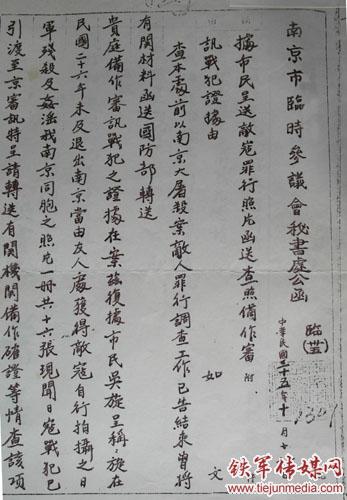 南京市臨時參議會秘書處公函
臨(丗)
中華民國三十五年十一月十
據市民呈送敵寇罪行照片函送查照備作審
附
訊戰犯證據由
如
文
查本處前以南京大屠殺案敵人罪行調查工作已告結束曾將
有関材料函送國防部轉送
貴庭備作審訊戰犯之證據在案茲復據市民吳旋呈稱「旋在
民國二十六年未及退出南京當由友人處獲得敵寇自行拍攝之日
軍殘殺及姦淫我南京同胞之照片一冊共十六張現聞日寇戰犯已
引渡至京審訊特呈請轉送有関機関備作確證等情查該項
铁军传媒网
www.tiejunmedia.com